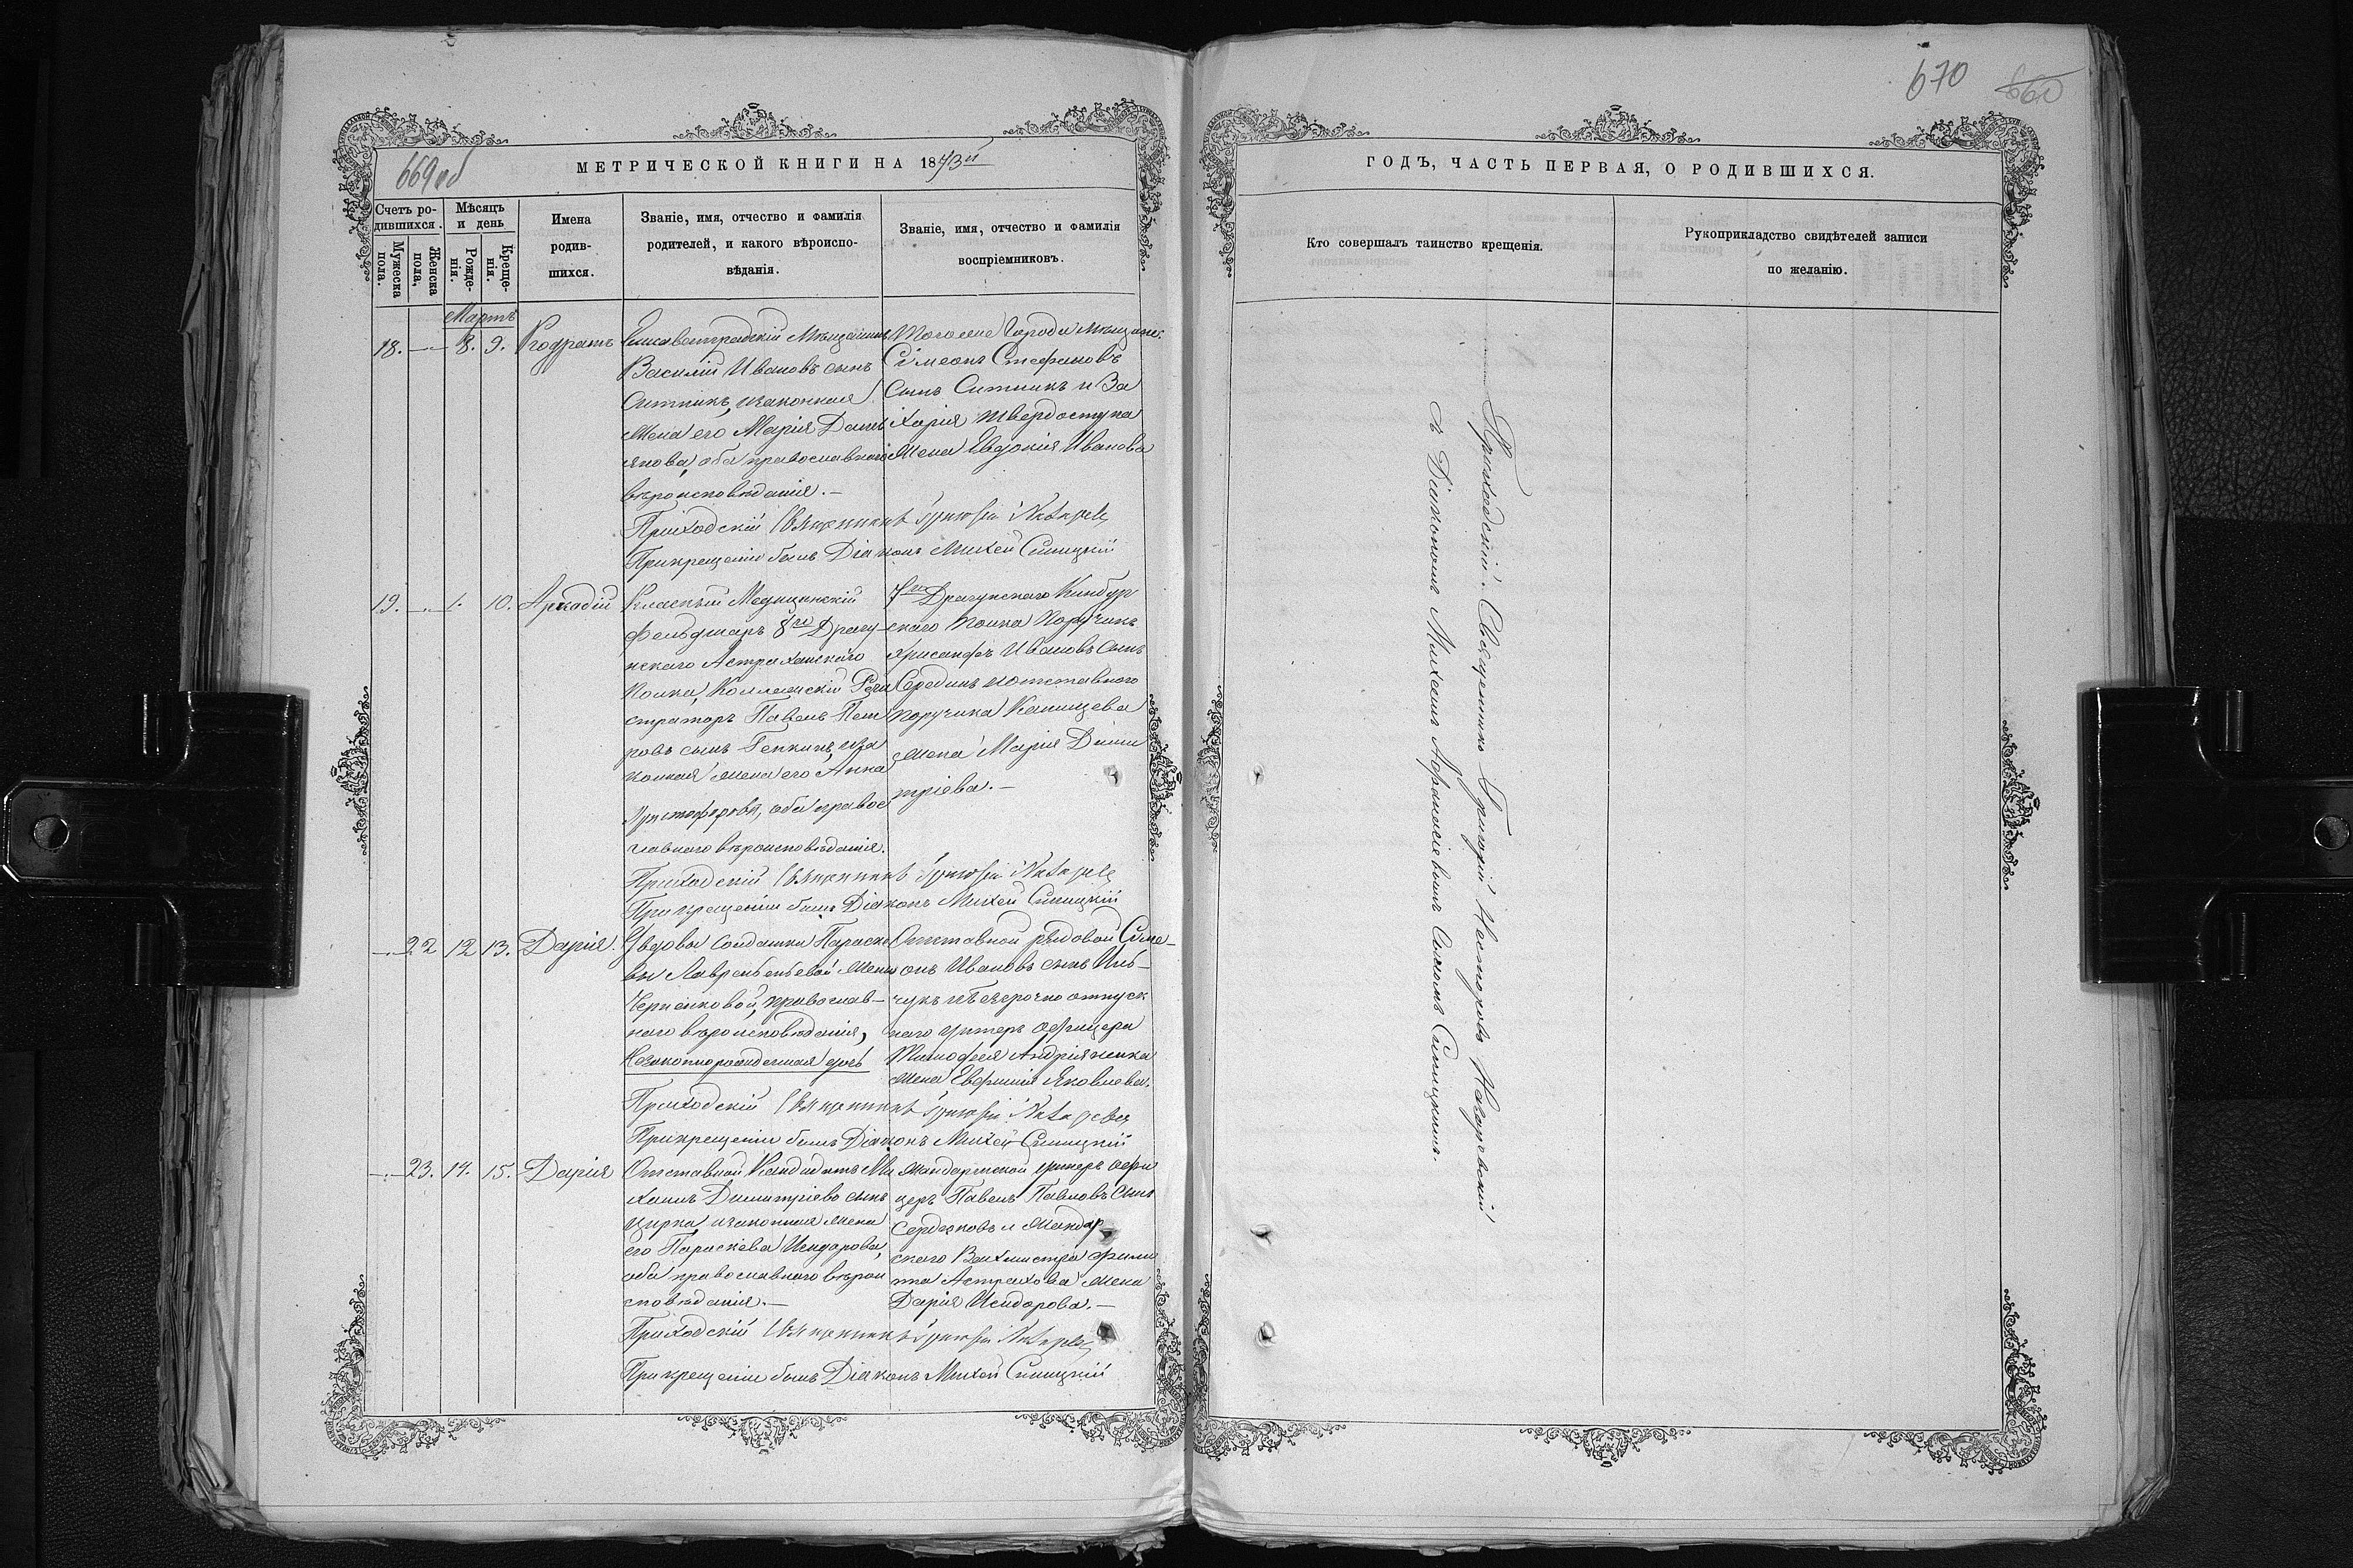 669об
МЕТРИЧЕСКОЙ КНИГИ НА 1873й
Счетъ ро-
дившихся.
Мужеска
пола.
Женска
пола,
Мѣсяцъ
и день
Рожде-
нія.
Креще-
нія.
Имена
родив-
шихся.
Званіе, имя, отчество и фамилія
родителей, и какого вѣроиспо-
вѣданія.
Званіе, имя, отчество и фамилія
воспріемниковъ.
Мартъ
18. 8. 9. Кодратъ
Елисаветградскій Мѣщанинъ
Василій Ивановъ сынъ
Ситникъ, и законная
жена его Марія Даміа
нова, оба православнаго
вѣроисповѣданія.—
Тогоже Города мѣщан.
Сімеонъ Стефановъ
Сынъ Ситникъ и За
харія Твердоступа
жена Евдокія Иванова
Приходскій Священникъ Григорій
При крещеніи былъ Діаконъ Михей Синицкій
19. 1. 10. Аркадій
Класный Медицинскій
Фельдшаръ 8го Драгу
нскаго Астраханскаго
Полка, Коллежскій Реги
страторъ Павелъ Пет
ровъ сынъ Гепкинъ, и за
конная жена его Анна
Христофорова, оба правос
лавнаго вѣроисповѣданія.
7го Драгунскаго Кинбур
скаго Полка Поручикъ
Хрисанфъ Ивановъ Сынъ
Серединъ и отставного
поручика Канищева
жена Марія Дими
тріева.—
Приходскій Священникъ Григорій
При крещеніи былъ Діаконъ Михей Синицкій
22 12 13. Дарія.
У вдовы солдатки Параске
вы Лаврентьевой жены
Черненковой, православ-
наго вѣроисповѣданія,
Незаконнорожденная дочь
Отставной рядовой Сіме-
онъ Ивановъ сынъ Иль-
чукъ и безсрочно отпуск
наго унтеръ офицера
Тимофея Андріяненка
жена Евфимія Яковлева.
Приходскій Священникъ Григорій
При крещеніи былъ Діаконъ Михей Синицкій
23. 14. 15. Дарія
Отставной Кандидатъ Ми
хаилъ Димитріевъ сынъ
Цирка, и законная жена
его Параскева Исидорова,
оба православнаго вѣрои
сповѣданія.—
Жандармской унтеръ офи
церъ Павелъ Павловъ Сынъ
Сердюковъ и Жандар
скаго Вахмистра Фили
ппа Астрахова жена
Дарія Исидорова.—
Приходскій Священникъ Григорій
При крещеніи былъ Діаконъ Михей Синицкій
670 660
ГОДЪ, ЧАСТЬ ПЕРВАЯ, О РОДИВШИХСЯ.
Кто совершалъ таинство крещенія.
Рукоприкладство свидѣтелей записи
по желанію.
Приходскій Священникъ Григорій Несторовъ Назаревскій
съ Діакономъ Михеемъ Афанасіевымъ Сыномъ Синицкимъ.